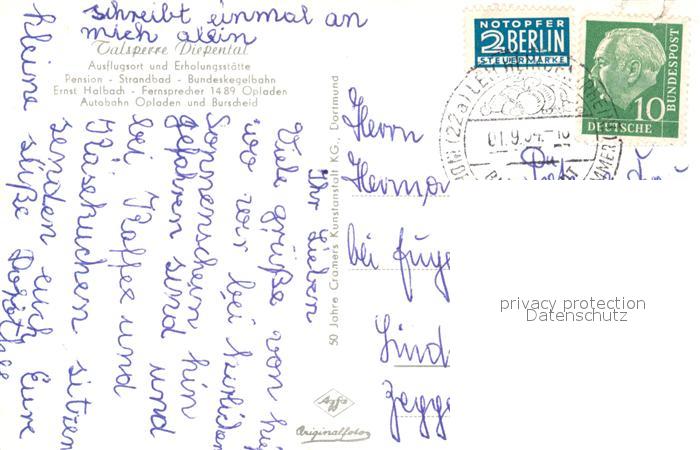 schreibt einmal an
mich allein
Talsperre Diepental
Ausflugsort und Erholungsstätte
Pension - Strandbad - Bundeskegelbahn
Ernst Halbach - Fernsprecher 1489 Opladen
Autobahn Opladen und Burscheid
Ihr Lieben
Viele grüße von hi
wo wir bei herrlichen
Sonnenschein hin
gefahren sind und
bei Kaffee und
Käsekuchen sitzen
senden euch Eure
kleine süße
50 Jahre Cramers Kunstanstalt KG., Dortmund
Agfa
Originalfoto
NOTOPFER
2 BERLIN
STEUERMARKE
DEUTSCHE
BUNDESPOST
10
(22a)
01.9.54.-18
Herrn
bei
privacy protection
Datenschutz